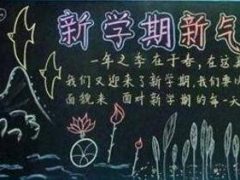 新学期新气
一年之季在于春，在这
我们又迎来了新学期，我们要
面貌来 面对新学期的每一天